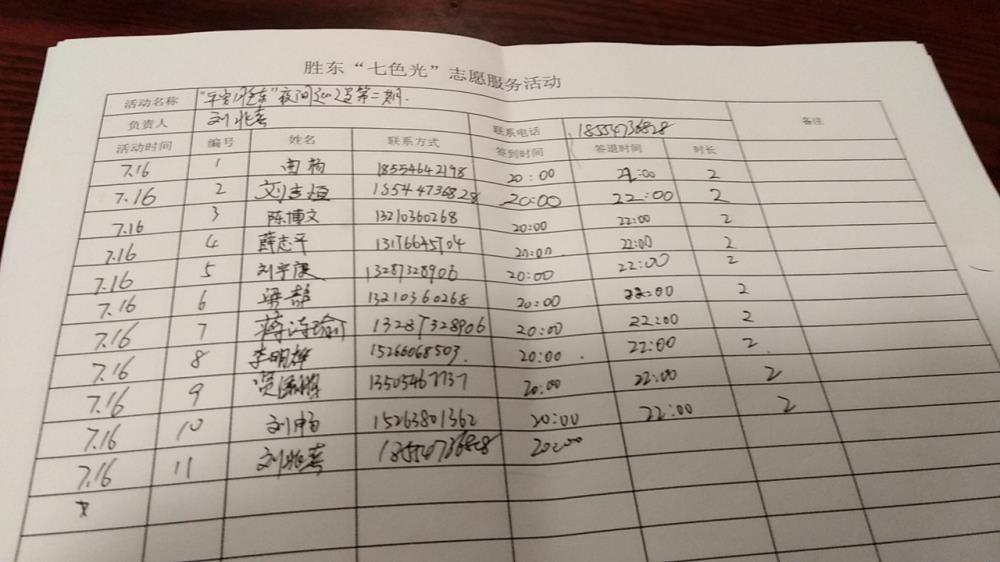 胜东“七色光”志愿服务活动
活动名称 “平安胜东”夜间巡逻第二期 备注
负责人 刘兆春 联系电话 18554736828
活动时间 编号 姓名 联系方式 签到时间 签退时间 时长
7.16 1 18554642198 20:00 22:00 2
7.16 2 20:00 22:00 2
7.16 3 陈博文 13210360268 20:00 22:00 2
7.16 4 薛志平 13176645704 20:00 22:00 2
7.16 5 13287328906 20:00 22:00 2
7.16 6 13210360268 20:00 22:00 2
7.16 7 13287328906 20:00 22:00 2
7.16 8 李明雄 15266068503 20:00 22:00 2
7.16 9 20:00 22:00 2
7.16 10 15263801362 20:00 22:00 2
7.16 11 刘兆春 18554736828 20:00